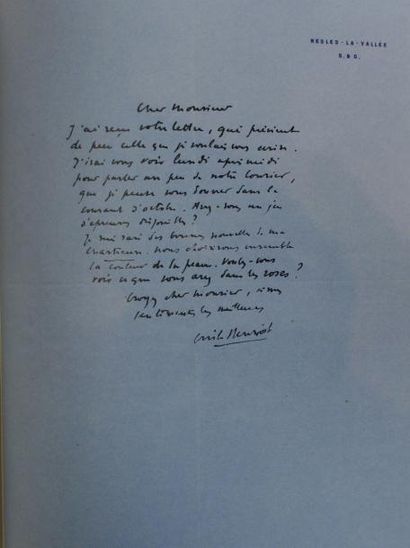 NESLES-LA-VALLÉE
S. & O.
Cher Monsieur
J'ai reçu votre lettre, qui prévient
de peu celle que je voulais vous écrire.
J'irai vous voir lundi après midi
pour parler un peu de notre
que je pense vous donner dans le
courant d'octobre. Avez-vous un jeu
d'épreuves disponible ?
Je suis ravi des bonnes nouvelles de ma
nous choisirons ensemble
la couleur de sa peau. Voulez-vous
voir ce que vous avez dans les roses ?
Croyez cher Monsieur, à mes
sentiments les meilleurs